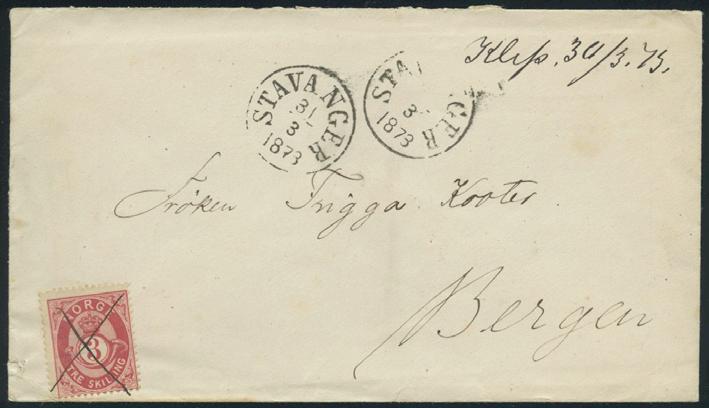 Klep. 30/3.73.
STAVANGER
31
3
1873
STA GER
3
1873
Frøken Frigga
Bergen
NORGE
3
TRE SKILLING